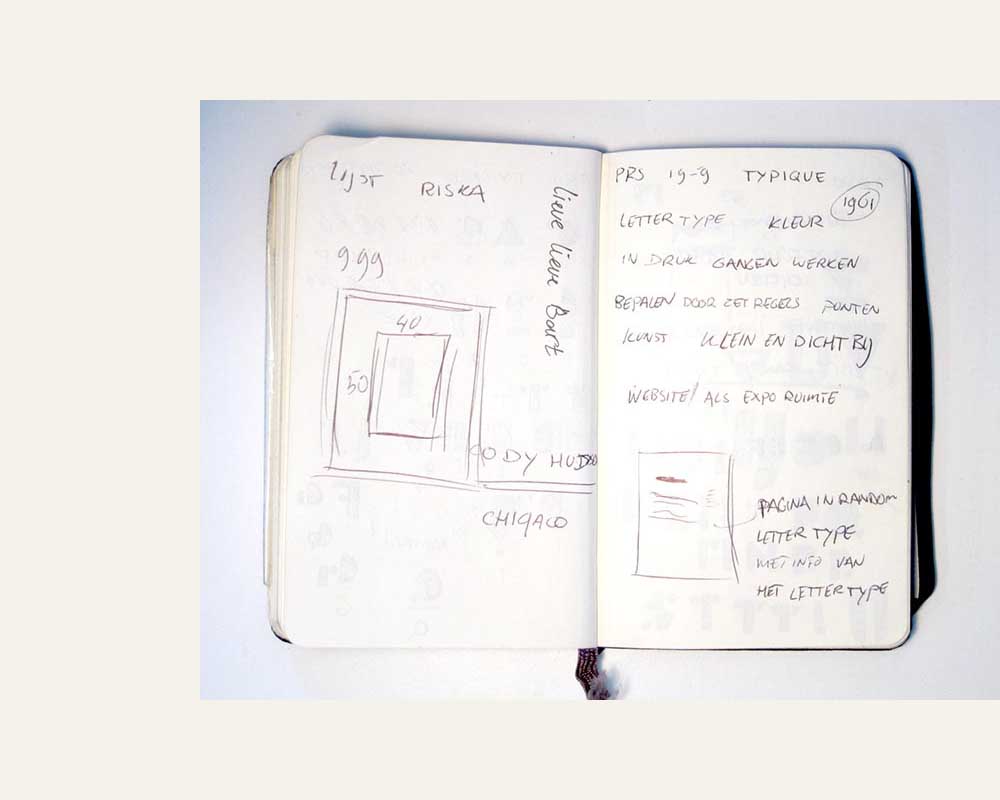 lijst RISKA
999
40
50
lieve lieve Bart
CODY HUDSON
CHIGACO
PRS 19-9 TYPIQUE
1961
LETTERTYPE KLEUR
IN DRUK GANGEN WERKEN
BEPALEN DOOR ZETREGELS PUNTEN
KUNST KLEIN EN DICHTBIJ
WEBSITE/ ALS EXPO RUIMTE
PAGINA IN RANDOM
LETTERTYPE
MET INFO VAN
HET LETTERTYPE